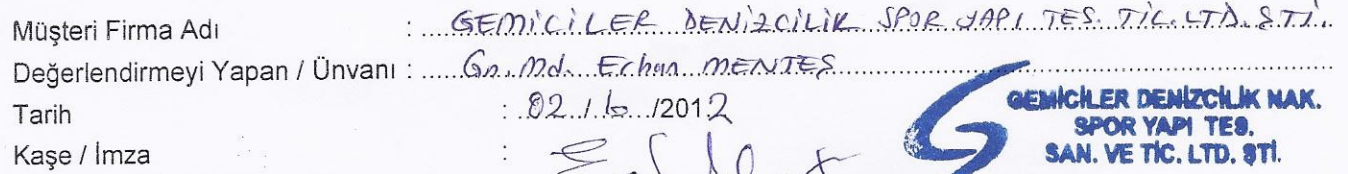 Müşteri Firma Adı : GEMİCİLER DENİZCİLİK SPOR YAPI TES. TİC. LTD. ŞTİ.
Değerlendirmeyi Yapan / Ünvanı : Gn. Md. Erhan MENTEŞ
Tarih : 02 / / 2012
Kaşe / İmza :
GEMİCİLER DENİZCİLİK NAK.
SPOR YAPI TES.
SAN. VE TİC. LTD. ŞTİ.